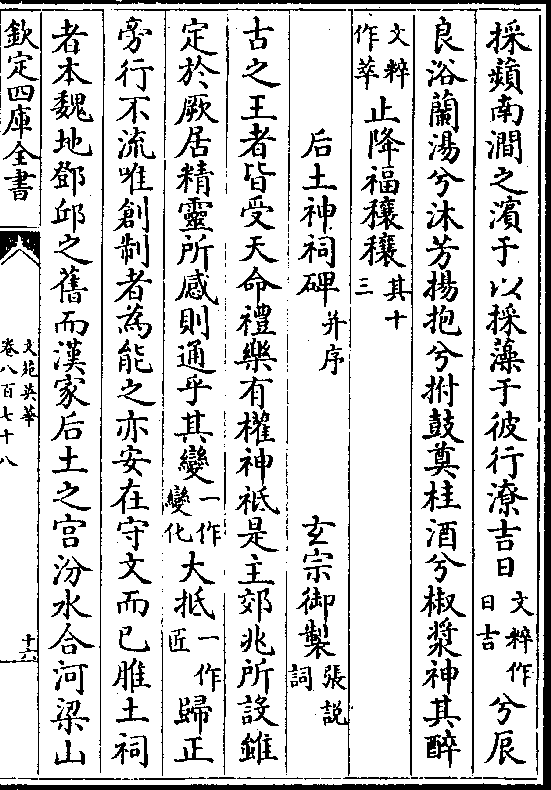 採蘋南澗之濱于以採藻于彼行潦吉日文粹作日吉兮辰
良浴蘭湯兮沐芳揚抱兮拊鼓奠桂酒兮椒漿神其醉
文粹作萃止降福穰穰其十三
后土神祠碑并序 玄宗御製張説詞
古之王者皆受天命禮樂有權神祗是主郊兆所設雖
定於厥居精靈所感則通乎其變一作變化大抵一作匠歸正
旁行不流唯創制者為能之亦安在守文而已脽土祠
者本魏地鄧邱之舊而漢家后土之宫汾水合河梁山
欽定四庫全書
文苑英華
卷八百七十八
十六